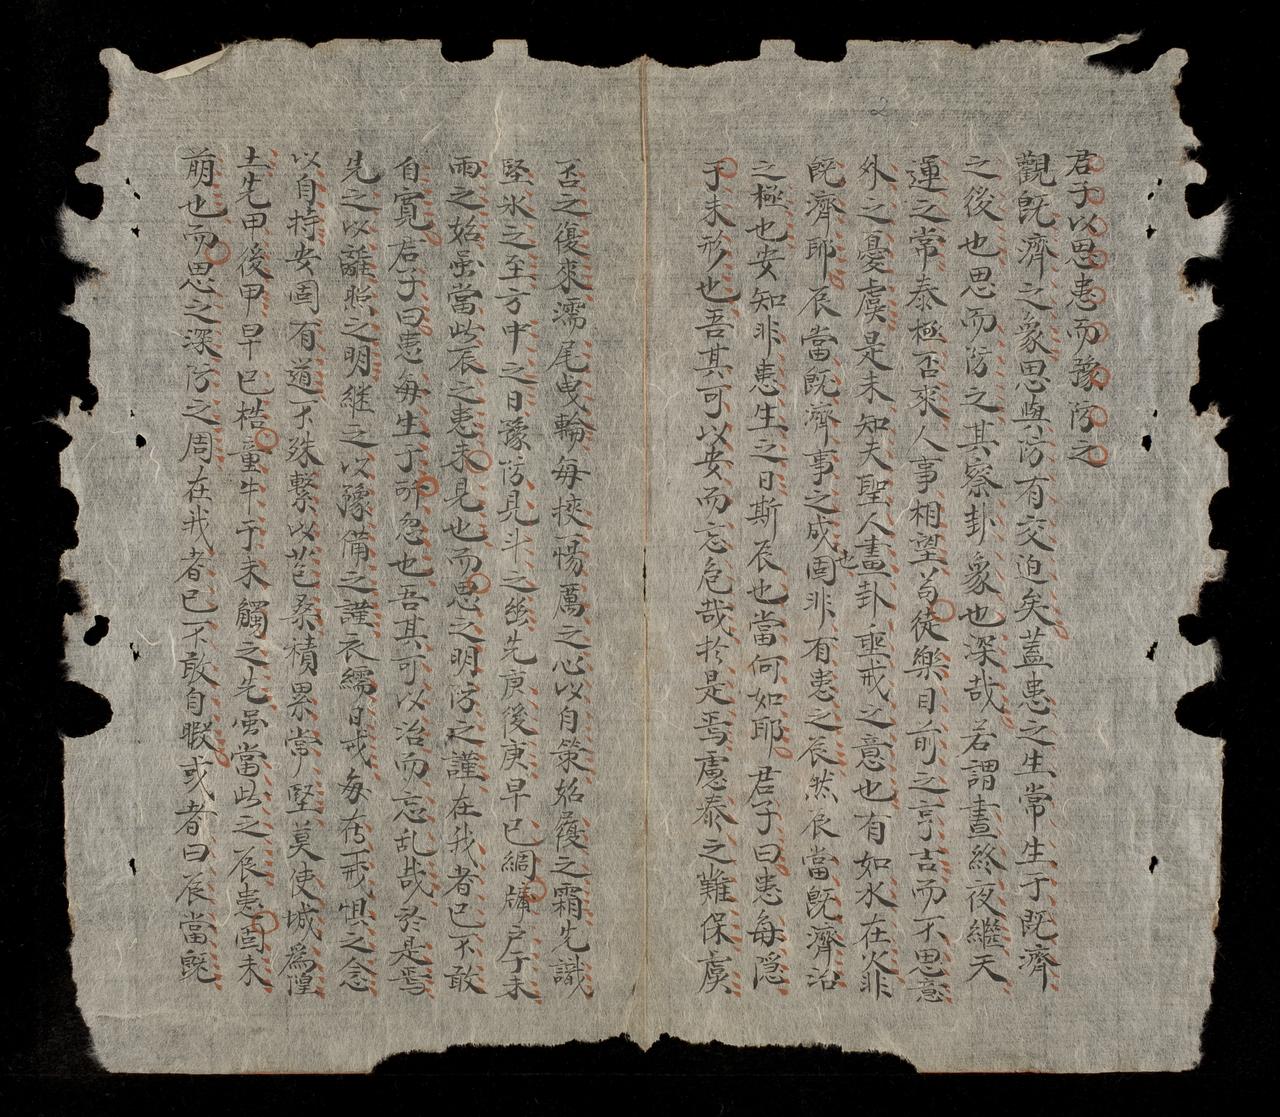 君子以思患而豫防之
觀既濟之象思與防有交迫矣蓋患之生常生于既濟
之後也思而防之其察卦象也深哉若謂晝終夜繼天
運之常泰極否來人事相望苟徒樂目前之亨吉而不思意
外之憂虞是未知夫聖人畫卦垂戒之意也有如水在火非
既濟耶辰當既濟事之成也固非有患之辰然辰當既濟治
之極也安知非患生之日斯辰也當何如耶君子曰患每隠
于未形也吾其可以安而忘危哉於是焉慮泰之難保虞
否之復來濡尾曳輪每挾惕厲之心以自策始履之霜先識
堅氷之至方中之日豫防見斗之幽先庚後庚早已綢牖户于未
雨之始虽當此辰之患未見也而思之明防之謹在我者已不敢
自寬君子曰患每生于所忽也吾其可以治而忘乱哉於是焉
先之以離照之明継之以豫備之謹衣繻日戒每存戒惧之念
以自持安固有道不殊繫以苞桑積累常堅莫使城為隍
土先甲後甲早已梏童牛于未觸之先虽當此之辰患固未
萌也而思之深防之周在我者已不敢自暇或者曰辰當既